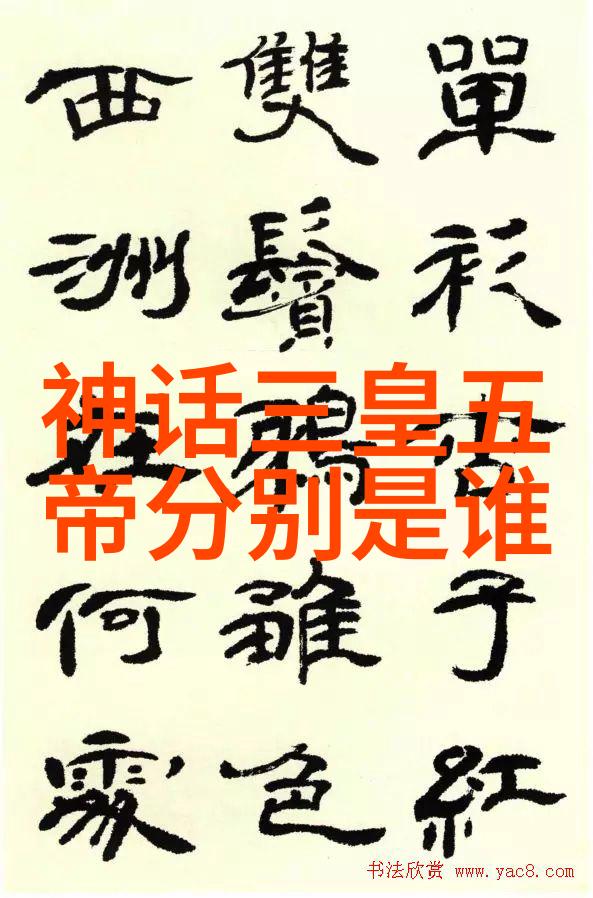 單衫杏子紅
雙鬢鴉雛色
西洲在何處
神话三皇五
帝分别是谁
书法欣赏 www.yac8.com